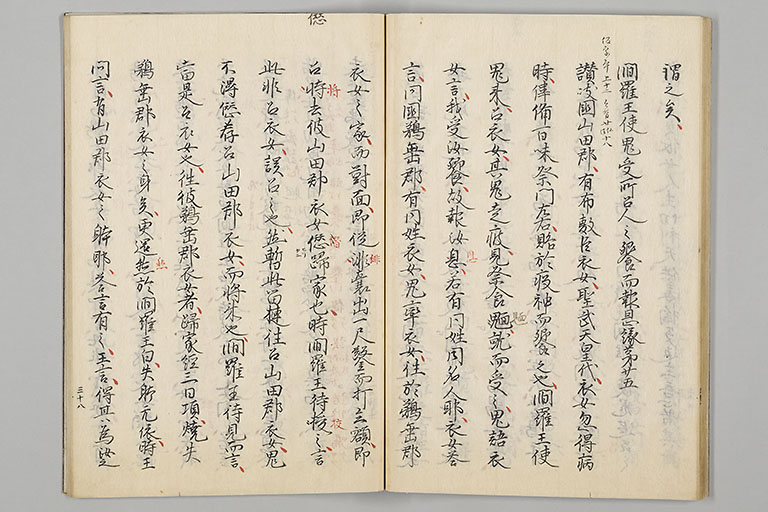 謂之矣
閻羅王使鬼受所召人之饗而報恩緣第廿五
讃岐國山田郡有布敷臣衣女聖武天皇代衣女忽得病
時偉備百味祭門左右賂於疫神而饗之也閻羅王使
鬼来召衣女其鬼走疲見祭食䩄就而受之鬼語衣
女言我受汝饗故報汝恩若有同姓同名人耶衣女荅
言同國鵜垂郡有同姓衣女鬼率衣女往於鵜垂郡
衣女之家而對面即從緋囊出一尺鑿而打立額即
召将去彼山田郡衣女僁歸家也時閻羅王待校之言
此非召衣女誤召之也然暫此留揵往召山田郡衣女鬼
不得僁荐召山田郡衣女而将来也閻羅王待見而言
當是召衣女也往彼鵜垂郡衣女者歸家經三日項燒失
鵜垂郡衣女之身矣更還然於閻羅王白失躰无依時王
問言有山田郡衣女之躰耶荅言有之王言得其為汝
三十八
将
緋
留
校
然
恩